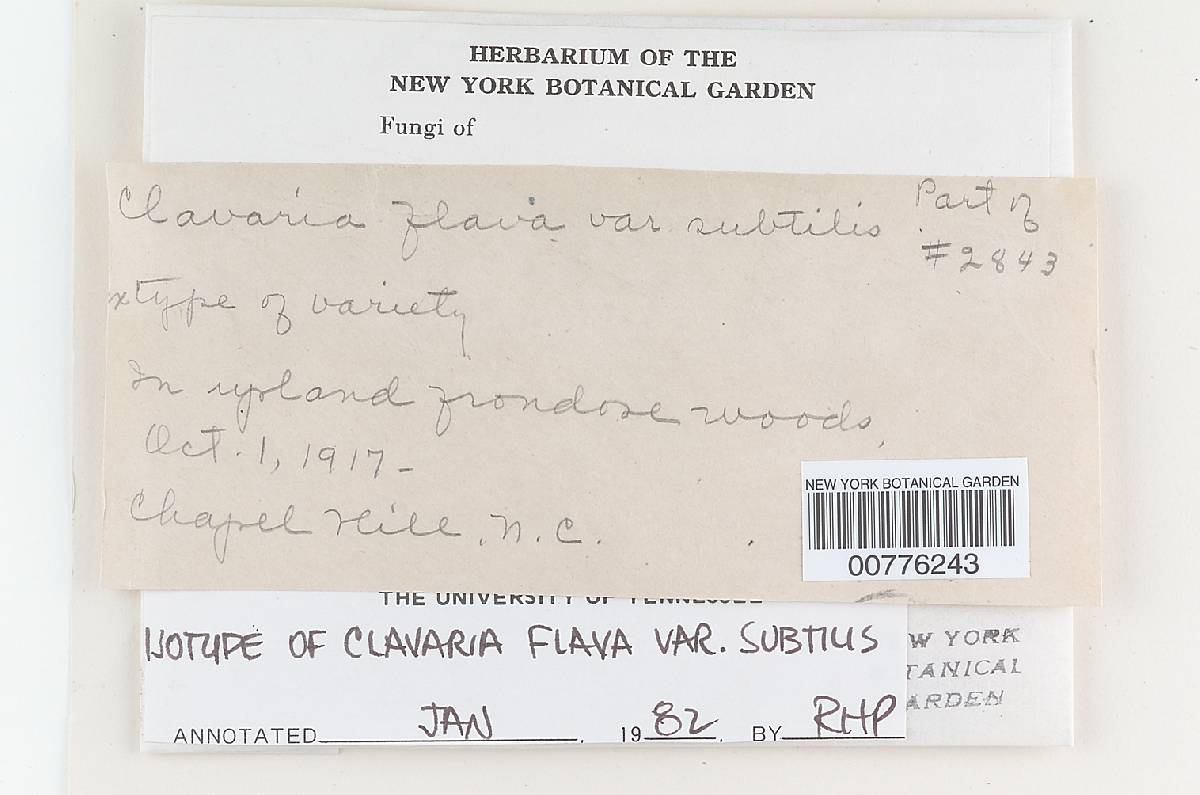 HERBARIUM OF THE
NEW YORK BOTANICAL GARDEN
Fungi of
Clavaria flava var. subtilis
Part of
#2843
xtype of variety
In upland frondose woods,
Oct. 1, 1917-
Chapel Hill, N.C.
NEW YORK BOTANICAL GARDEN
00776243
THE UNIVERSITY OF TENNESSEE
ISOTYPE OF CLAVARIA FLAVA VAR. SUBTILIS
ANNOTATED JAN 1982 BY RHP
W YORK
TANICAL
ARDEN